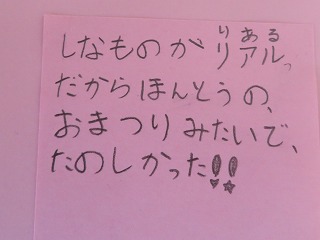 しなものがリアルっ
だからほんとうの、
おまつりみたいで、
たのしかった!!